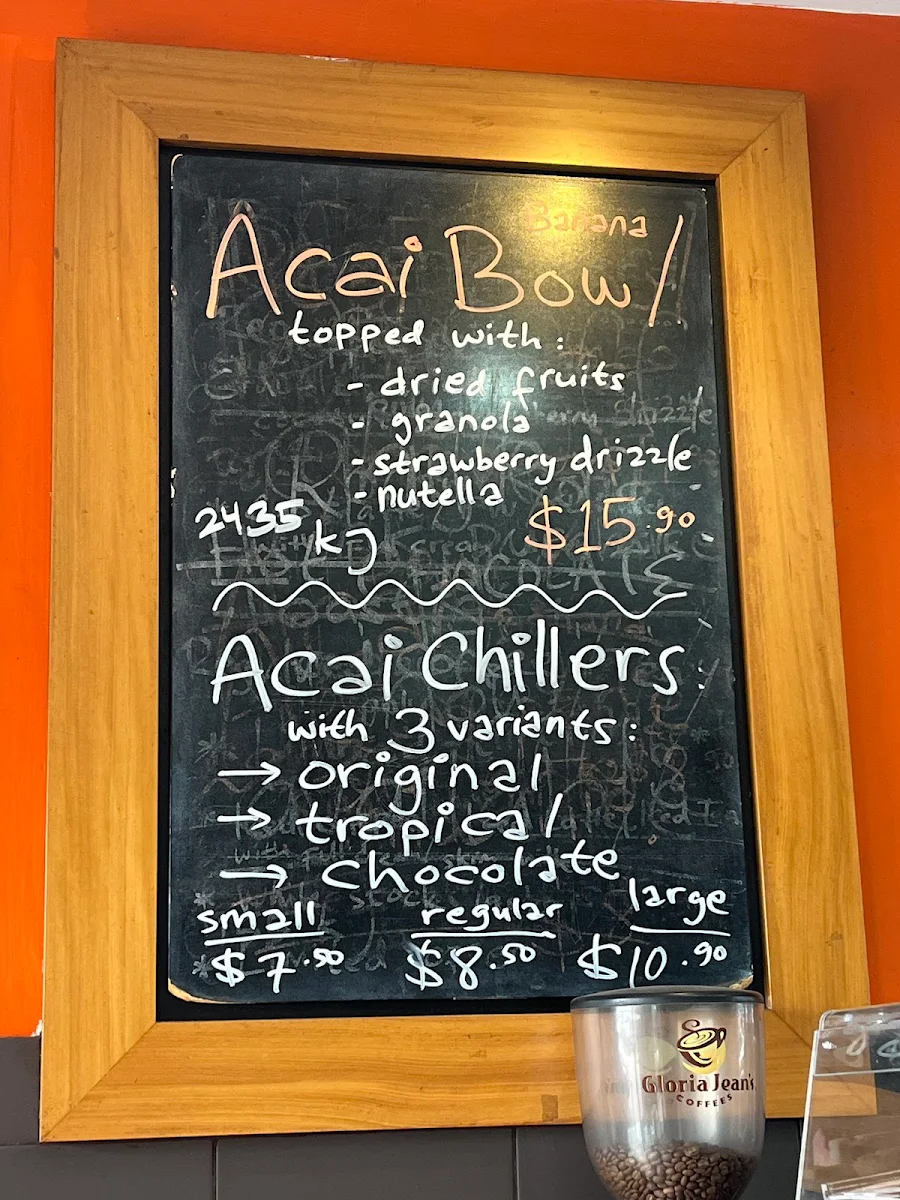 Banana
Acai Bowl
topped with:
- dried fruits
- granola
- strawberry drizzle
- nutella
2435 kJ
$15.90
Acai Chillers:
with 3 variants:
→ original
→ tropical
→ chocolate
small regular large
$7.50 $8.50 $10.90
Gloria Jean's
COFFEES